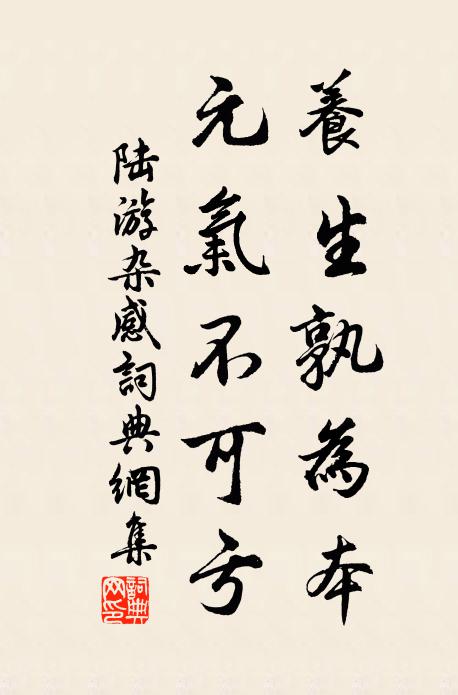 養生孰為本
元氣不可亏
陆游杂感詞典網集
詞典網印